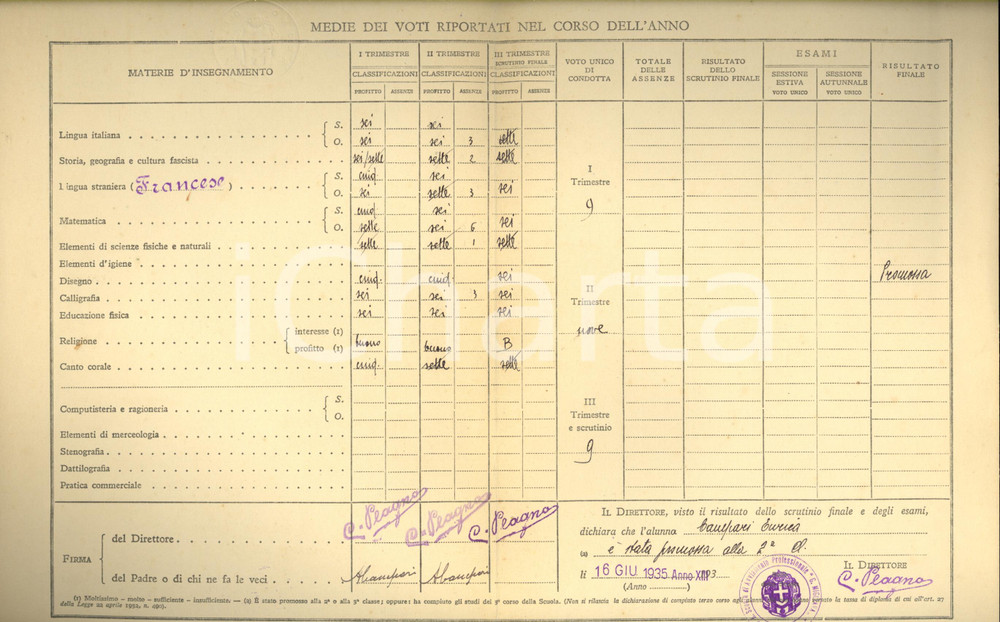 MEDIE DEI VOTI RIPORTATI NEL CORSO DELL'ANNO
MATERIE D'INSEGNAMENTO
I TRIMESTRE
CLASSIFICAZIONI
PROFITTO ASSENZE
II TRIMESTRE
CLASSIFICAZIONI
PROFITTO ASSENZE
III TRIMESTRE
SCRUTINIO FINALE
CLASSIFICAZIONI
PROFITTO ASSENZE
VOTO UNICO
DI
CONDOTTA
TOTALE
DELLE
ASSENZE
RISULTATO
DELLO
SCRUTINIO FINALE
ESAMI
SESSIONE
ESTIVA
VOTO UNICO
SESSIONE
AUTUNNALE
VOTO UNICO
RISULTATO
FINALE
S. sei sei
Lingua italiana O. sei sei 3 sette
Storia, geografia e cultura fascista sei/sette sette 2 sette
S. cinq. sei
Lingua straniera (Francese) O. sei sette 3 sei
S. cinq. sei
Matematica O. sette sei 6 sei
Elementi di scienze fisiche e naturali sette sette 1 sette
Elementi d'igiene
Disegno cinq. cinq. sei
Calligrafia sei sei 3 sei
Educazione fisica sei sei sei
Religione
interesse (1)
profitto (1)
buono buono B
Canto corale cinq. sette sette
Computisteria e ragioneria
S.
O.
Elementi di merceologia
Stenografia
Dattilografia
Pratica commerciale
I
Trimestre
9
II
Trimestre
nove
III
Trimestre
e scrutinio
9
Promossa
iCharta
FIRMA
del Direttore C. Peagno C. Peagno C. Peagno
del Padre o di chi ne fa le veci ACampari ACampari
IL DIRETTORE, visto il risultato dello scrutinio finale e degli esami,
dichiara che l'alunna Campari Enrica
(2) è stata promossa alla 2ª cl.
lì 16 GIU 1935 Anno XIII 193
(Anno )
IL DIRETTORE
C. Peagno
(1) Moltissimo - molto - sufficiente - insufficiente. — (2) È stato promosso alla 2ª o alla 3ª classe; oppure: ha compiuto gli studi del 3º corso della Scuola. (Non si rilascia la dichiarazione di compiuto terzo corso
della Legge 22 aprile 1932, n. 490).
la tassa di diploma di cui all'art. 27